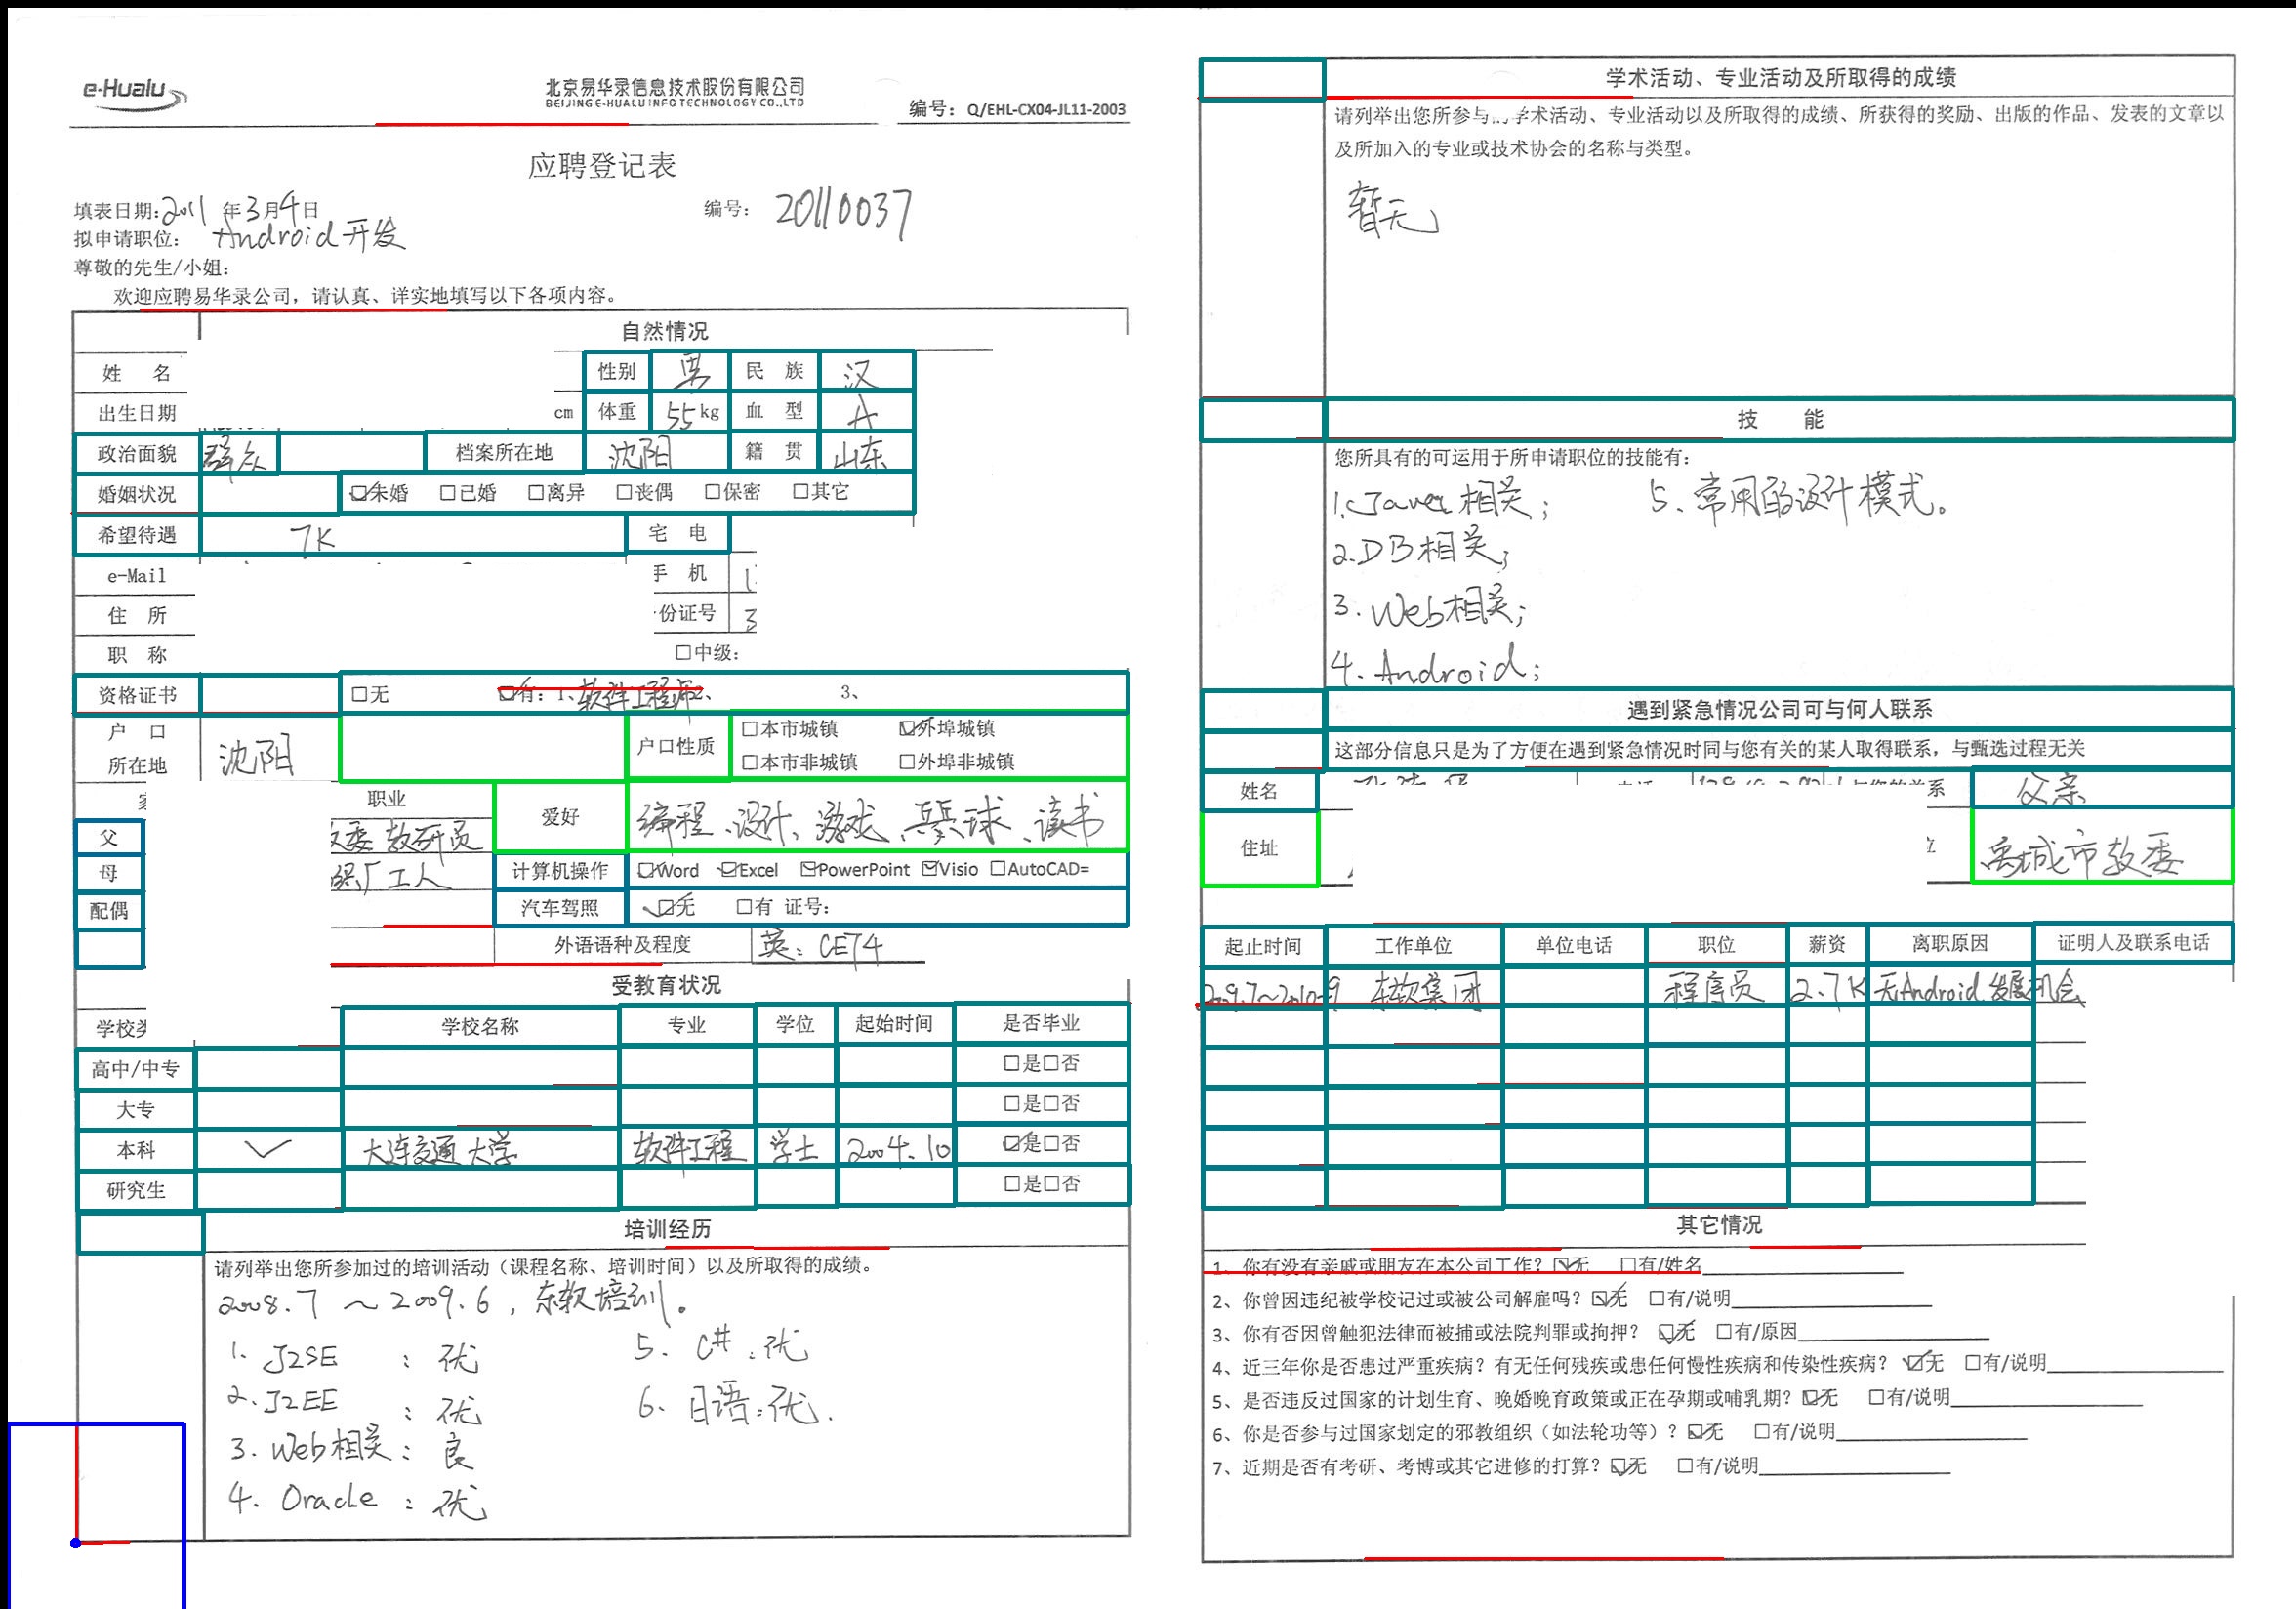 e-Hualu
北京易华录信息技术股份有限公司
BEIJING E-HUALU INFO TECHNOLOGY CO.,LTD
编号：Q/EHL-CX04-JL11-2003
应聘登记表
填表日期：2011 年3月4日
编号： 20110037
拟申请职位： Android开发
尊敬的先生/小姐：
欢迎应聘易华录公司，请认真、详实地填写以下各项内容。
自然情况
姓 名 性别 男 民 族 汉
出生日期 cm 体重 55kg 血 型 A
政治面貌 群众 档案所在地 沈阳 籍 贯 山东
婚姻状况 ☑未婚 □已婚 □离异 □丧偶 □保密 □其它
希望待遇 7K 宅 电
e-Mail 手 机
住 所 份证号 3
职 称 □中级：
资格证书 □无 ☑有：1、软件工程师2、 3、
户 口 所在地 沈阳 户口性质 □本市城镇 ☑外埠城镇
□本市非城镇 □外埠非城镇
职业 爱好 编程、设计、游戏、乒乓球、读书
父 教委 教研员
母 织厂工人 计算机操作 ☑Word ☑Excel ☑PowerPoint ☑Visio □AutoCAD=
配偶 汽车驾照 ☑无 □有 证号：
外语语种及程度 英：CET4
受教育状况
学校类 学校名称 专业 学位 起始时间 是否毕业
高中/中专 □是□否
大专 □是□否
本科 ✓ 大连交通大学 软件工程 学士 2004.10 ☑是□否
研究生 □是□否
培训经历
请列举出您所参加过的培训活动（课程名称、培训时间）以及所取得的成绩。
2008.7 ～2009.6，东软培训。
1. J2SE ：优 5. C#：优
2. J2EE ：优 6. 日语：优.
3. Web相关：良
4. Oracle：优
学术活动、专业活动及所取得的成绩
请列举出您所参与的学术活动、专业活动以及所取得的成绩、所获得的奖励、出版的作品、发表的文章以
及所加入的专业或技术协会的名称与类型。
暂无
技 能
您所具有的可运用于所申请职位的技能有：
1.Java 相关； 5、常用的设计模式。
2.DB相关；
3.Web相关；
4.Android；
遇到紧急情况公司可与何人联系
这部分信息只是为了方便在遇到紧急情况时同与您有关的某人取得联系，与甄选过程无关
姓名 系 父亲
住址 禹城市教委
起止时间 工作单位 单位电话 职位 薪资 离职原因 证明人及联系电话
2009.7～2010.9 东软集团 程序员 2.7K 无Android发展机会
其它情况
1、你有没有亲戚或朋友在本公司工作？☑无 □有/姓名
2、你曾因违纪被学校记过或被公司解雇吗？☑无 □有/说明
3、你有否因曾触犯法律而被捕或法院判罪或拘押？ ☑无 □有/原因
4、近三年你是否患过严重疾病？有无任何残疾或患任何慢性疾病和传染性疾病？ ☑无 □有/说明
5、是否违反过国家的计划生育、晚婚晚育政策或正在孕期或哺乳期？☑无 □有/说明
6、你是否参与过国家划定的邪教组织（如法轮功等）？☑无 □有/说明
7、近期是否有考研、考博或其它进修的打算？☑无 □有/说明